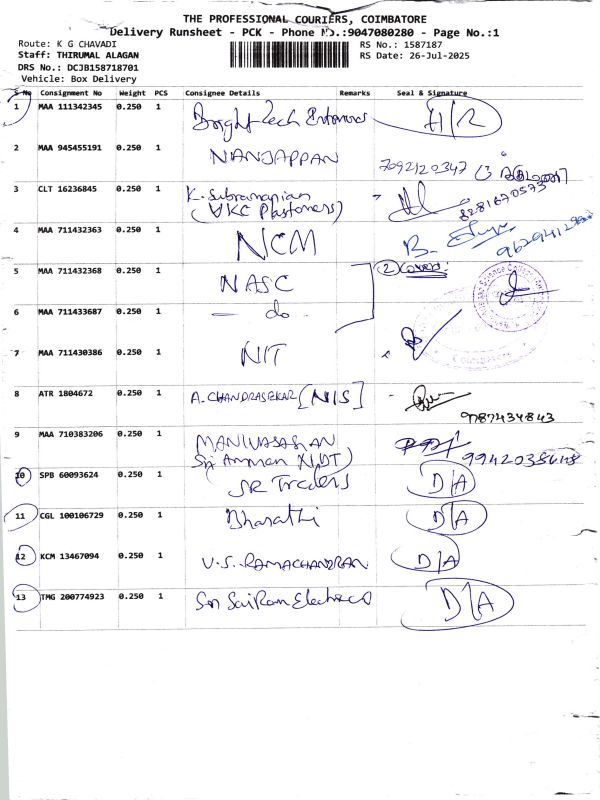 THE PROFESSIONAL COURIERS, COIMBATORE
Delivery Runsheet - PCK - Phone No.:9047080280 - Page No.:1
Route: K G CHAVADI
RS No.: 1587187
Staff: THIRUMAL ALAGAN
RS Date: 26-Jul-2025
DRS No.: DCJB158718701
Vehicle: Box Delivery
S No Consignment No Weight PCS Consignee Details Remarks Seal & Signature
1 MAA 111342345 0.250 1 Bright Tech
2 MAA 945455191 0.250 1 NANJAPPAN 7092120347
3 CLT 16236845 0.250 1 K. Subramanian
(VKC Plastomers) 8281670573
4 MAA 711432363 0.250 1 NCM B.
5 MAA 711432368 0.250 1 NASC (2) Cover
6 MAA 711433687 0.250 1 — do —
7 MAA 711430386 0.250 1 NIT
8 ATR 1804672 0.250 1 A. CHANDRASEKAR [NIS]
9787434843
9 MAA 710383206 0.250 1 MANIVASAGAN
Sri Amman
10 SPB 60093624 0.250 1 SR Traders D/A
11 CGL 100106729 0.250 1 Bharathi D/A
12 KCM 13467094 0.250 1 V.S. RAMACHANDRAN D/A
13 TMG 200774923 0.250 1 Sri SaiRam Electricals D/A